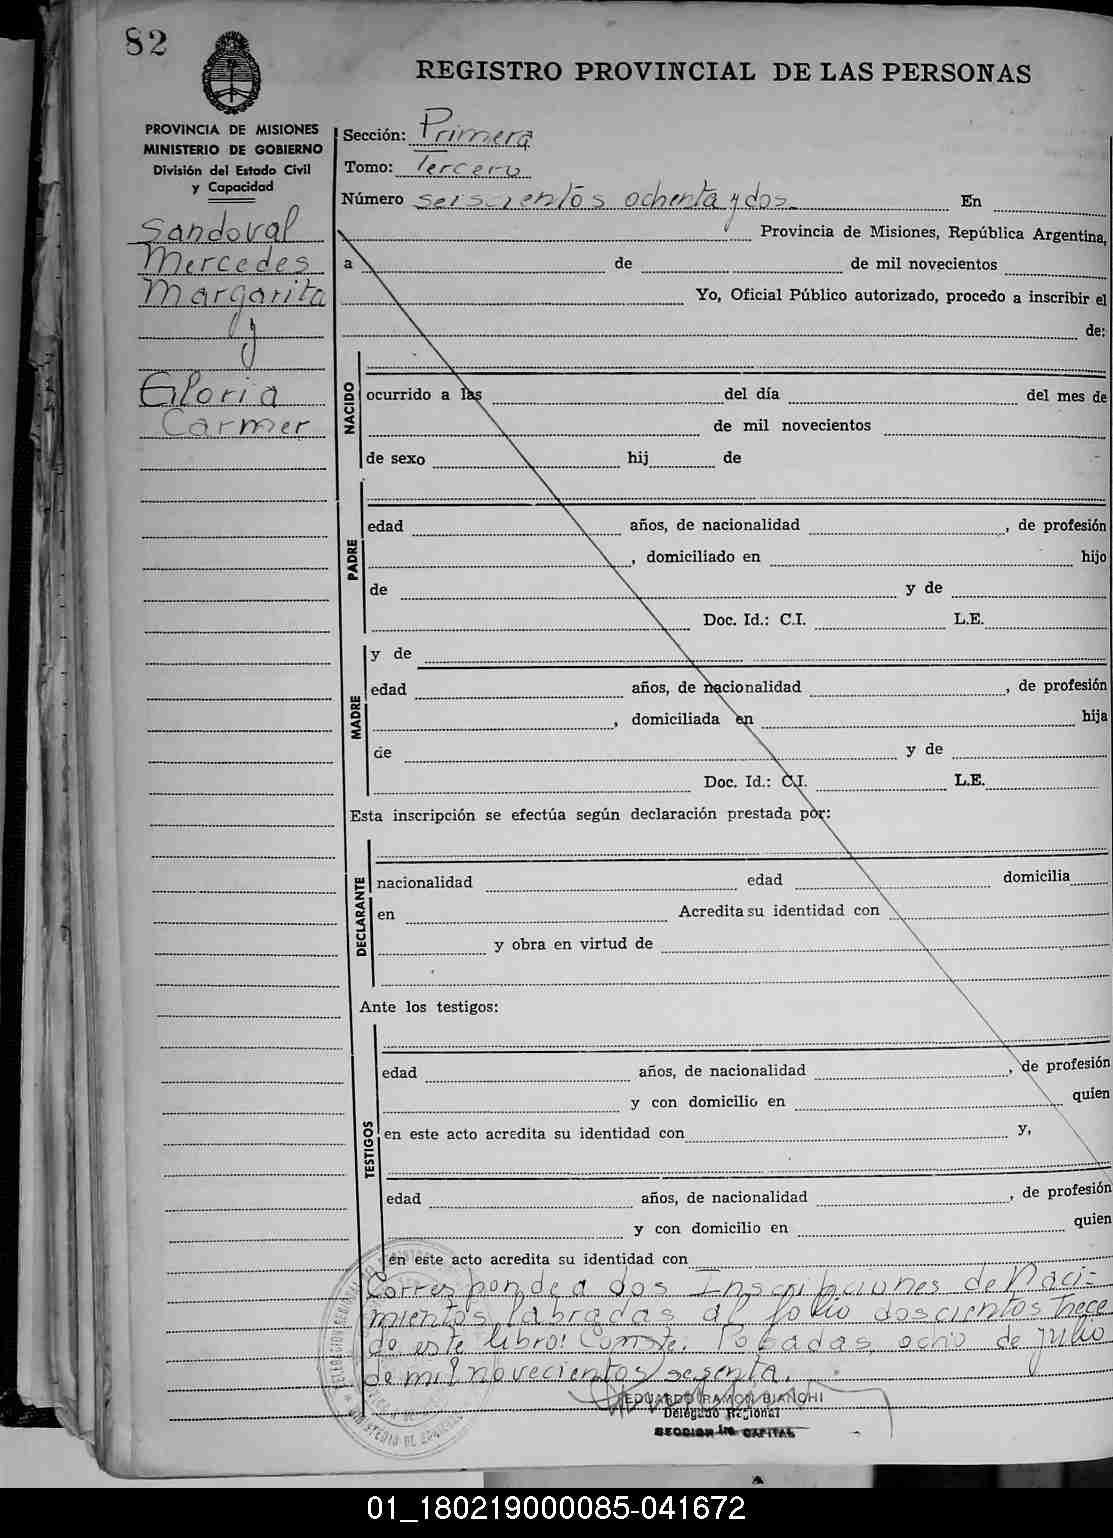 82
REGISTRO PROVINCIAL DE LAS PERSONAS
PROVINCIA DE MISIONES
MINISTERIO DE GOBIERNO
División del Estado Civil
y Capacidad
Sandoval
Mercedes
Margarita
y
Gloria
Carmen
Sección: Primera
Tomo: Tercero
Número seiscientos ochenta y dos En
Provincia de Misiones, República Argentina,
a de de mil novecientos
Yo, Oficial Público autorizado, procedo a inscribir el
de:
NACIDO
ocurrido a las del día del mes de
de mil novecientos
de sexo hij de
PADRE
edad años, de nacionalidad , de profesión
, domiciliado en hijo
de y de
Doc. Id.: C.I. L.E.
MADRE
y de
edad años, de nacionalidad , de profesión
, domiciliada en hija
de y de
Doc. Id.: C.I. L.E.
Esta inscripción se efectúa según declaración prestada por:
DECLARANTE
nacionalidad edad domicilia
en Acredita su identidad con
y obra en virtud de
Ante los testigos:
TESTIGOS
edad años, de nacionalidad , de profesión
y con domicilio en quien
en este acto acredita su identidad con y,
edad años, de nacionalidad , de profesión
y con domicilio en quien
en este acto acredita su identidad con
Corresponde a dos Inscripciones de Naci=
mientos labradas al folio doscientos trece
de este libro! Conste. Posadas, ocho de julio
de mil novecientos sesenta.
EDUARDO RAMON BIANCHI
Delegado Regional
SECCION 1ra CAPITAL
01_180219000085-041672